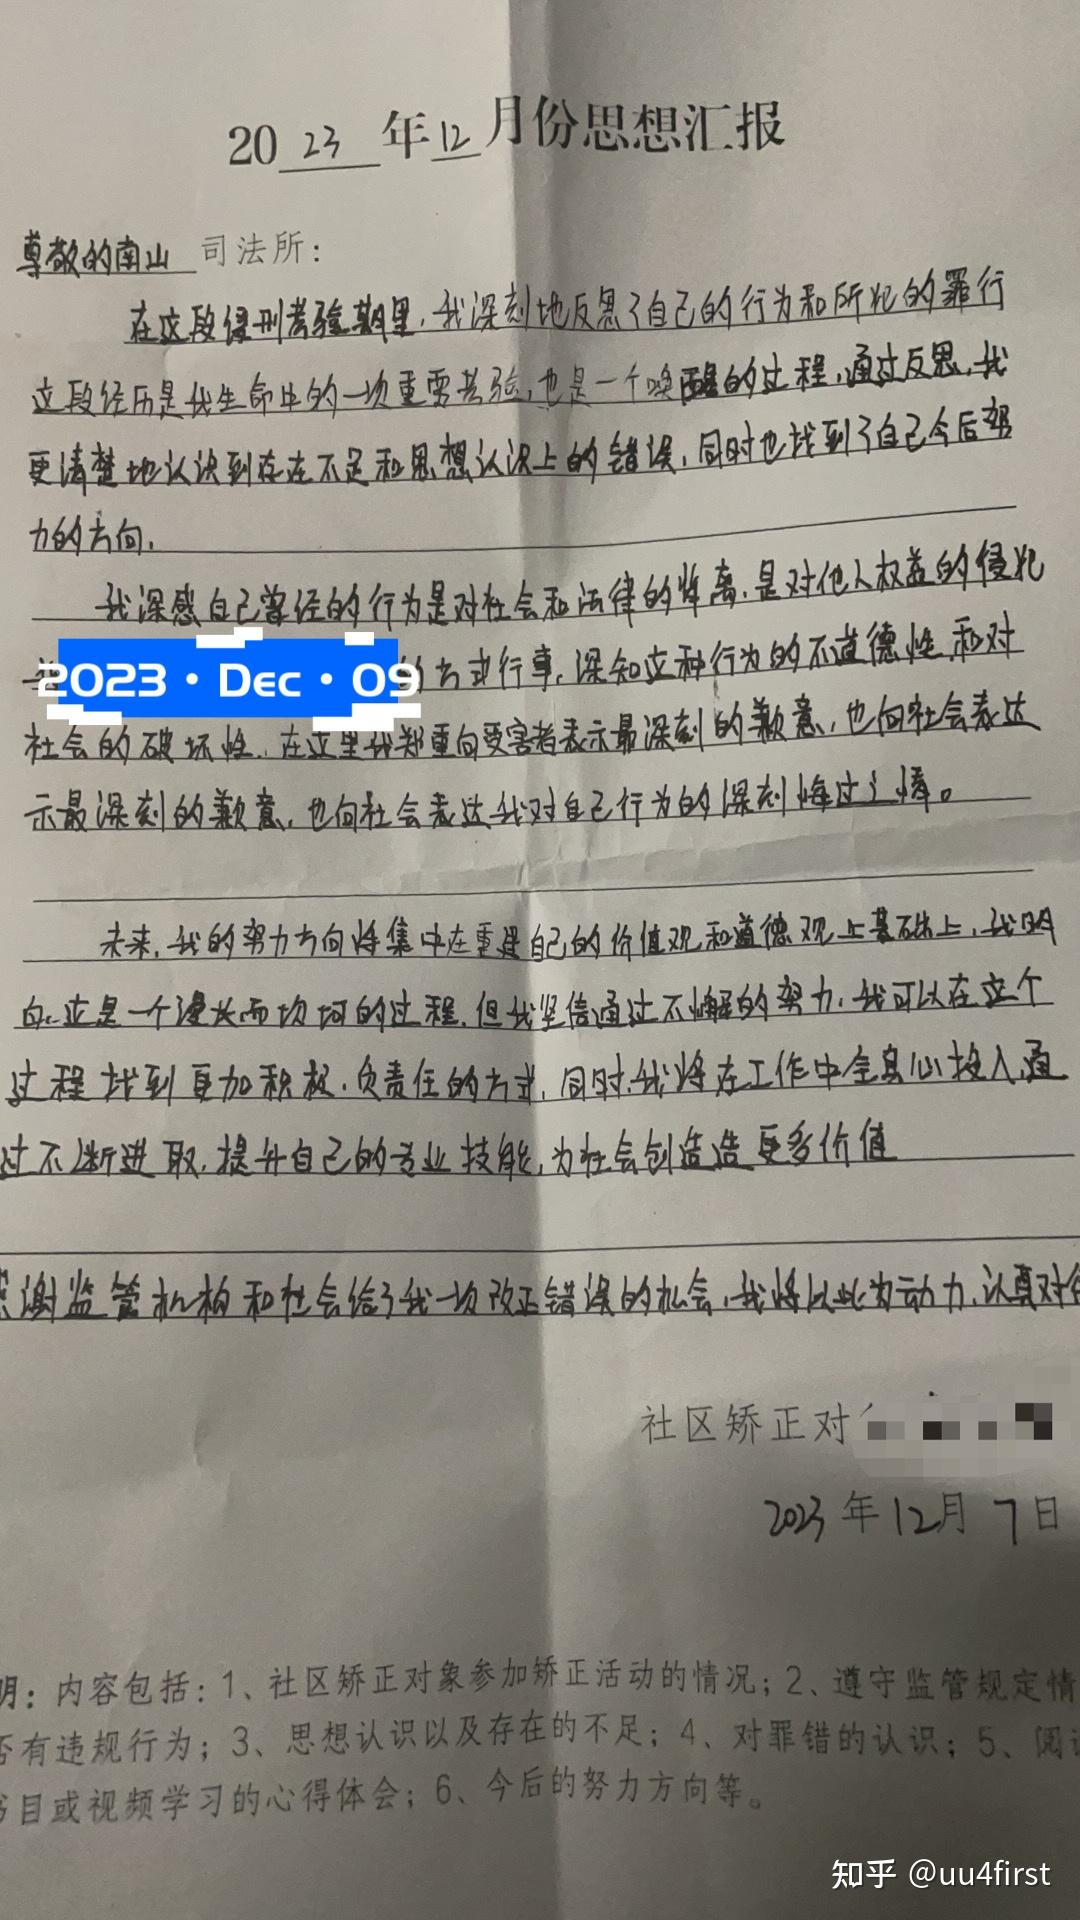 2023年12月份思想汇报
尊敬的南山司法所：
在这段缓刑考验期里，我深刻地反思了自己的行为和所犯的罪行
这段经历是我生命中的一次重要考验，也是一个唤醒的过程，通过反思，我
更清楚地认识到存在不足和思想认识上的错误，同时也找到了自己今后努
力的方向，
我深感自己曾经的行为是对社会和法律的背离，是对他人权益的侵犯
2023·Dec·09
的方式行事，深知这种行为的不道德性，和对
社会的破坏性，在这里我郑重向受害者表示最深刻的歉意，也向社会表达
示最深刻的歉意，也向社会表达我对自己行为的深刻悔过之情。
未来，我的努力方向将集中在重建自己的价值观和道德观上基础上，我明
白，这是一个漫长而坎坷的过程，但我坚信通过不懈的努力，我可以在这个
过程找到更加积极、负责任的方式，同时，我将在工作中全身心投入，通
过不断进取，提升自己的专业技能，为社会创造造更多价值
谢监管机构和社会给了我一次改正错误的机会，我将以此为动力，认真对
社区矫正对
2023年12月7日
明：内容包括：1、社区矫正对象参加矫正活动的情况；2、遵守监管规定情
否有违规行为；3、思想认识以及存在的不足；4、对罪错的认识；5、阅
书目或视频学习的心得体会；6、今后的努力方向等。
知乎 @uu4first